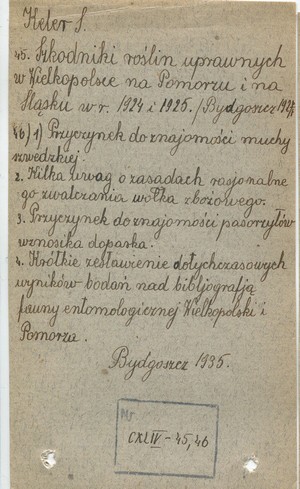 Keler S.
45. Szkodniki roślin uprawnych
w Wielkopolsce na Pomorzu i na
Śląsku w r. 1924 i 1925. /Bydgoszcz
46) 1) Przyczynek do znajomości muchy
szwedzkiej.
2. Kilka uwag o zasadach racjonalne
go zwalczania wołka zbożowego.
3. Przyczynek do znajomości pasorzytów
wznosika doparka.
4. Krótkie zestawienie dotychczasowych
wyników badań nad bibljografją
fauny entomologicznej Wielkopolski i
Pomorza.
Bydgoszcz 1935.
Nr.
CXLIV - 45, 46